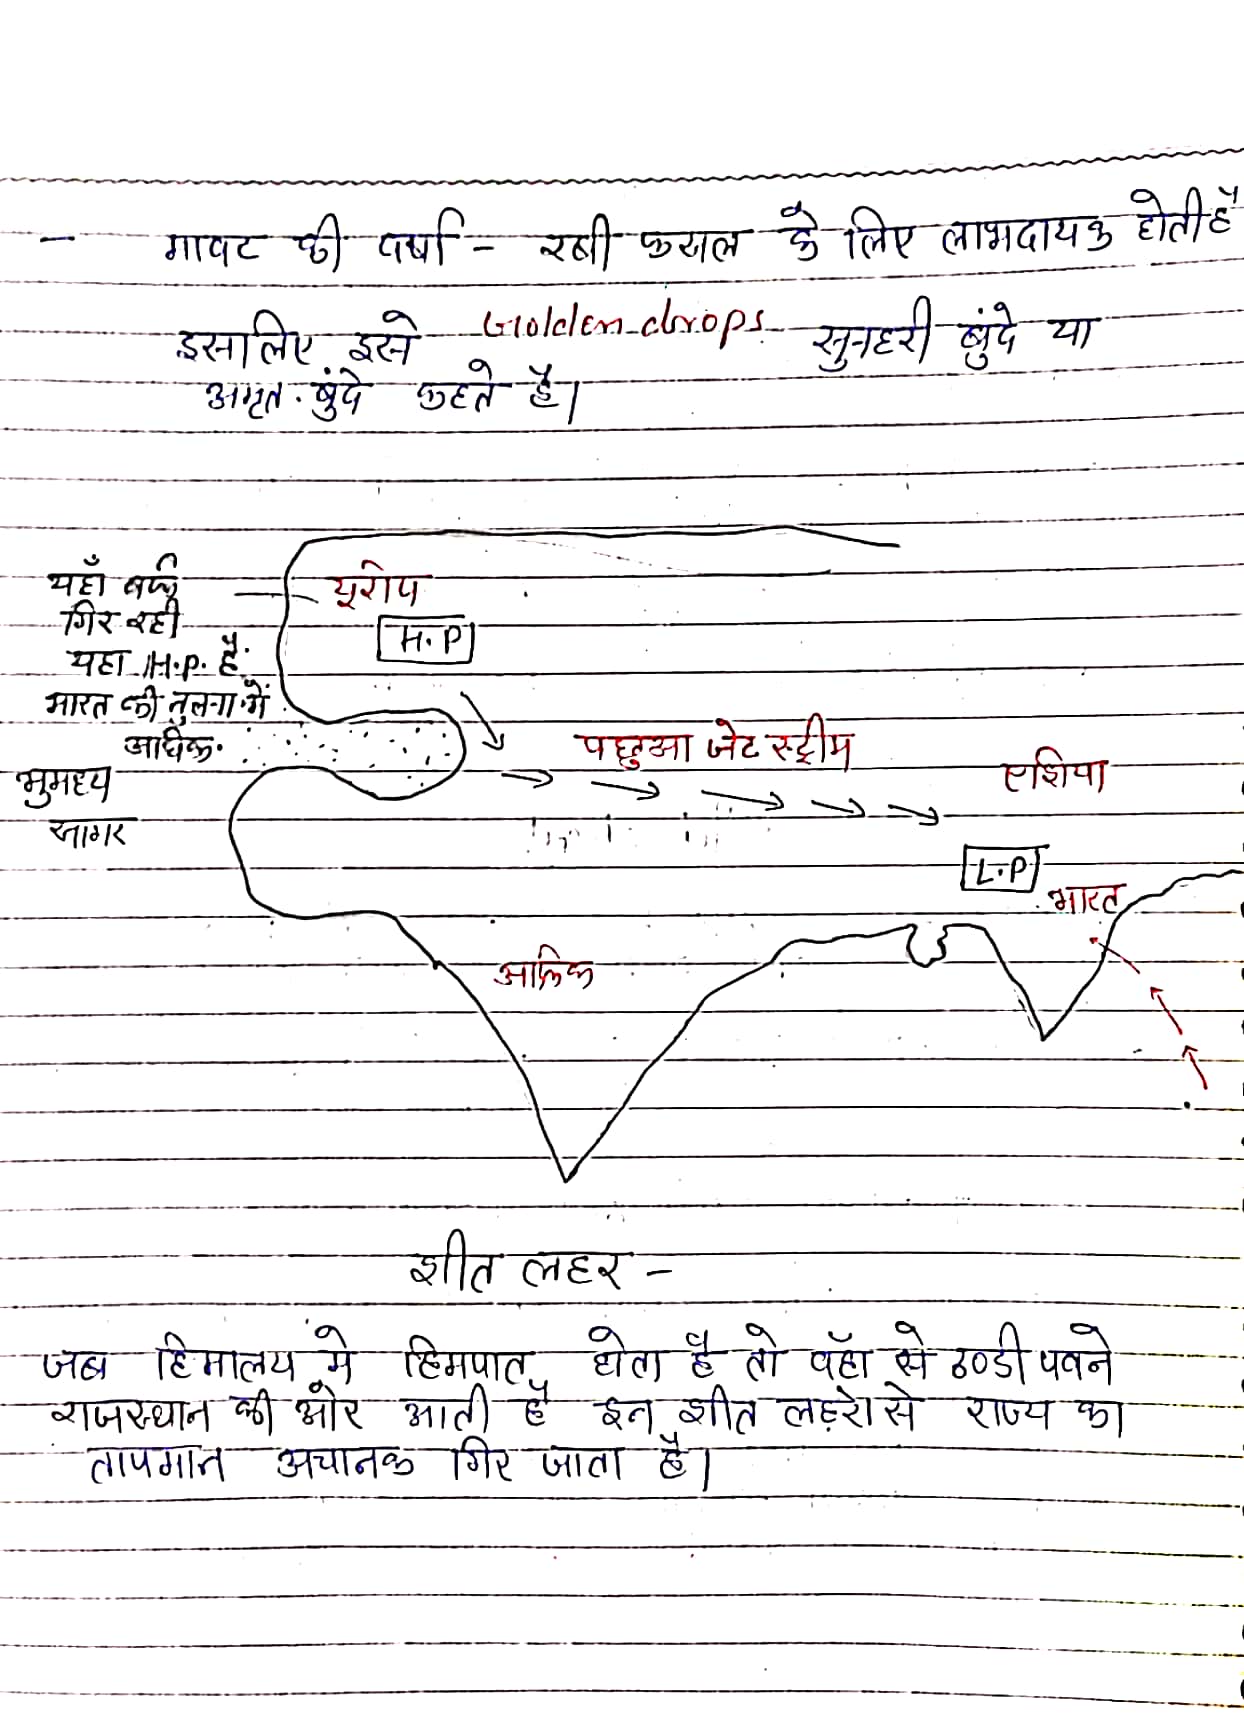 - मावट की वर्षा - रबी फसल के लिए लाभदायक होती है
इसलिए इसे Golden drops सुनहरी बुंदे या
अमृत बुंदे कहते है।
यहाँ बर्फ
गिर रही
यहा H.P. है
भारत की तुलना में
अधिक
यूरोप
H.P
पछुआ जेट स्ट्रीम
एशिया
भुमध्य
सागर
L.P
भारत
अफ्रिक
शीत लहर -
जब हिमालय मे हिमपात होता है तो वहाँ से ठण्डी पवने
राजस्थान की ओर आती है इन शीत लहरो से राज्य का
तापमान अचानक गिर जाता है।